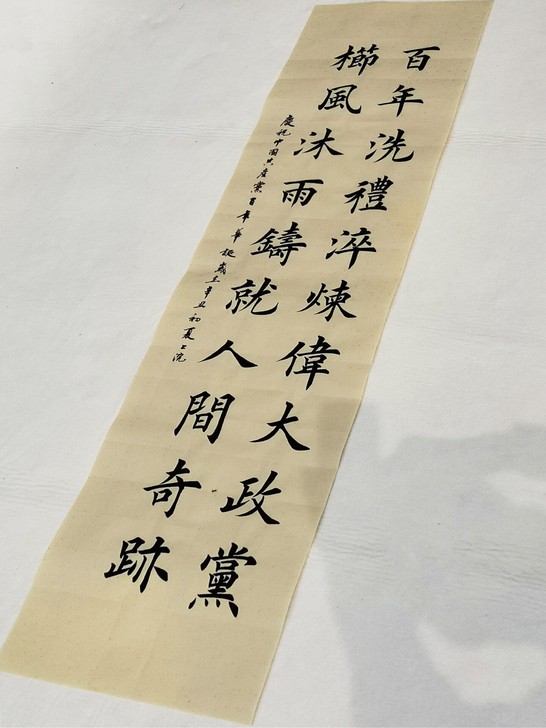 百年洗禮淬煉偉大政黨
櫛風沐雨鑄就人間奇跡
慶祝中國共產黨百年華誕歲在辛丑初夏上浣